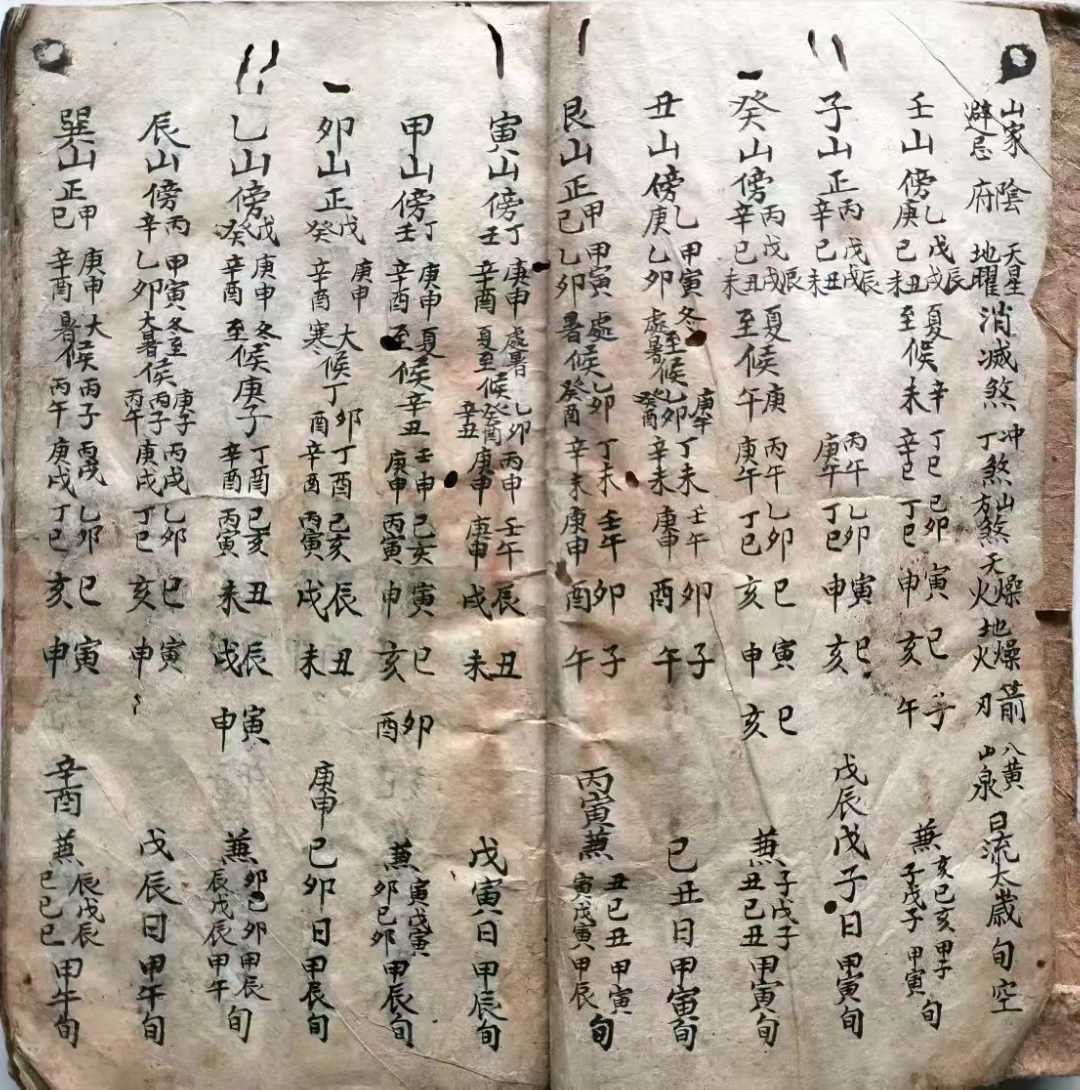 山家避忌 陰府 天星地曜 消滅煞 冲丁煞 山方煞 天燥火 地燥火 箭刃 八山黄泉 日流太歲 旬空
壬山 傍乙庚 戊戌辰己未丑 夏至候辛未 丁巳辛巳 己卯丁巳 寅申 巳亥 子午 兼亥己亥子戊子 甲子甲寅旬
子山 正丙辛 戊戌辰己未丑 丙午庚午 乙卯丁巳 寅申 巳亥 戊辰 戊子日 甲寅旬
癸山 傍丙辛 戊戌辰己未丑 夏至候庚午 丙午庚午 乙卯丁巳 巳亥 寅申 巳亥 兼子戊子丑己丑 甲寅旬
丑山 傍乙庚 甲寅乙卯 冬至處暑候乙卯癸酉庚午 丁未辛未 壬午庚申 卯酉 子午 己丑日 甲寅旬
艮山 正甲己 甲寅乙卯 處暑候乙卯癸酉 丁未辛未 壬午庚申 卯酉 子午 丙寅 兼丑己丑寅戊寅 甲寅甲辰旬
寅山 傍丁壬 庚申辛酉 處暑夏至候乙卯癸酉辛丑 丙申庚申 壬午庚申 辰戌 丑未 戊寅日 甲辰旬
甲山 傍丁壬 庚申辛酉 夏至候辛丑 壬申庚申 己亥丙寅 寅申 巳亥 卯酉 兼寅戊寅卯己卯 甲辰旬
卯山 正戊癸 庚申辛酉 大寒候丁卯酉 丁酉辛酉 己亥丙寅 辰戌 丑未 庚申 己卯日 甲辰旬
乙山 傍戊癸 庚申辛酉 冬至候庚子 丁酉辛酉 己亥丙寅 丑未 辰戌 寅申 兼卯己卯辰戊辰 甲辰甲午旬
辰山 傍丙辛 甲寅乙卯 冬至大暑候庚子丙子丙午 丙戌庚戌 乙卯丁巳 巳亥 寅申 戊辰日 甲午旬
巽山 正甲己 庚申辛酉 大暑候丙子丙午 丙戌庚戌 乙卯丁巳 巳亥 寅申 辛酉 兼辰戊辰巳己巳 甲午旬